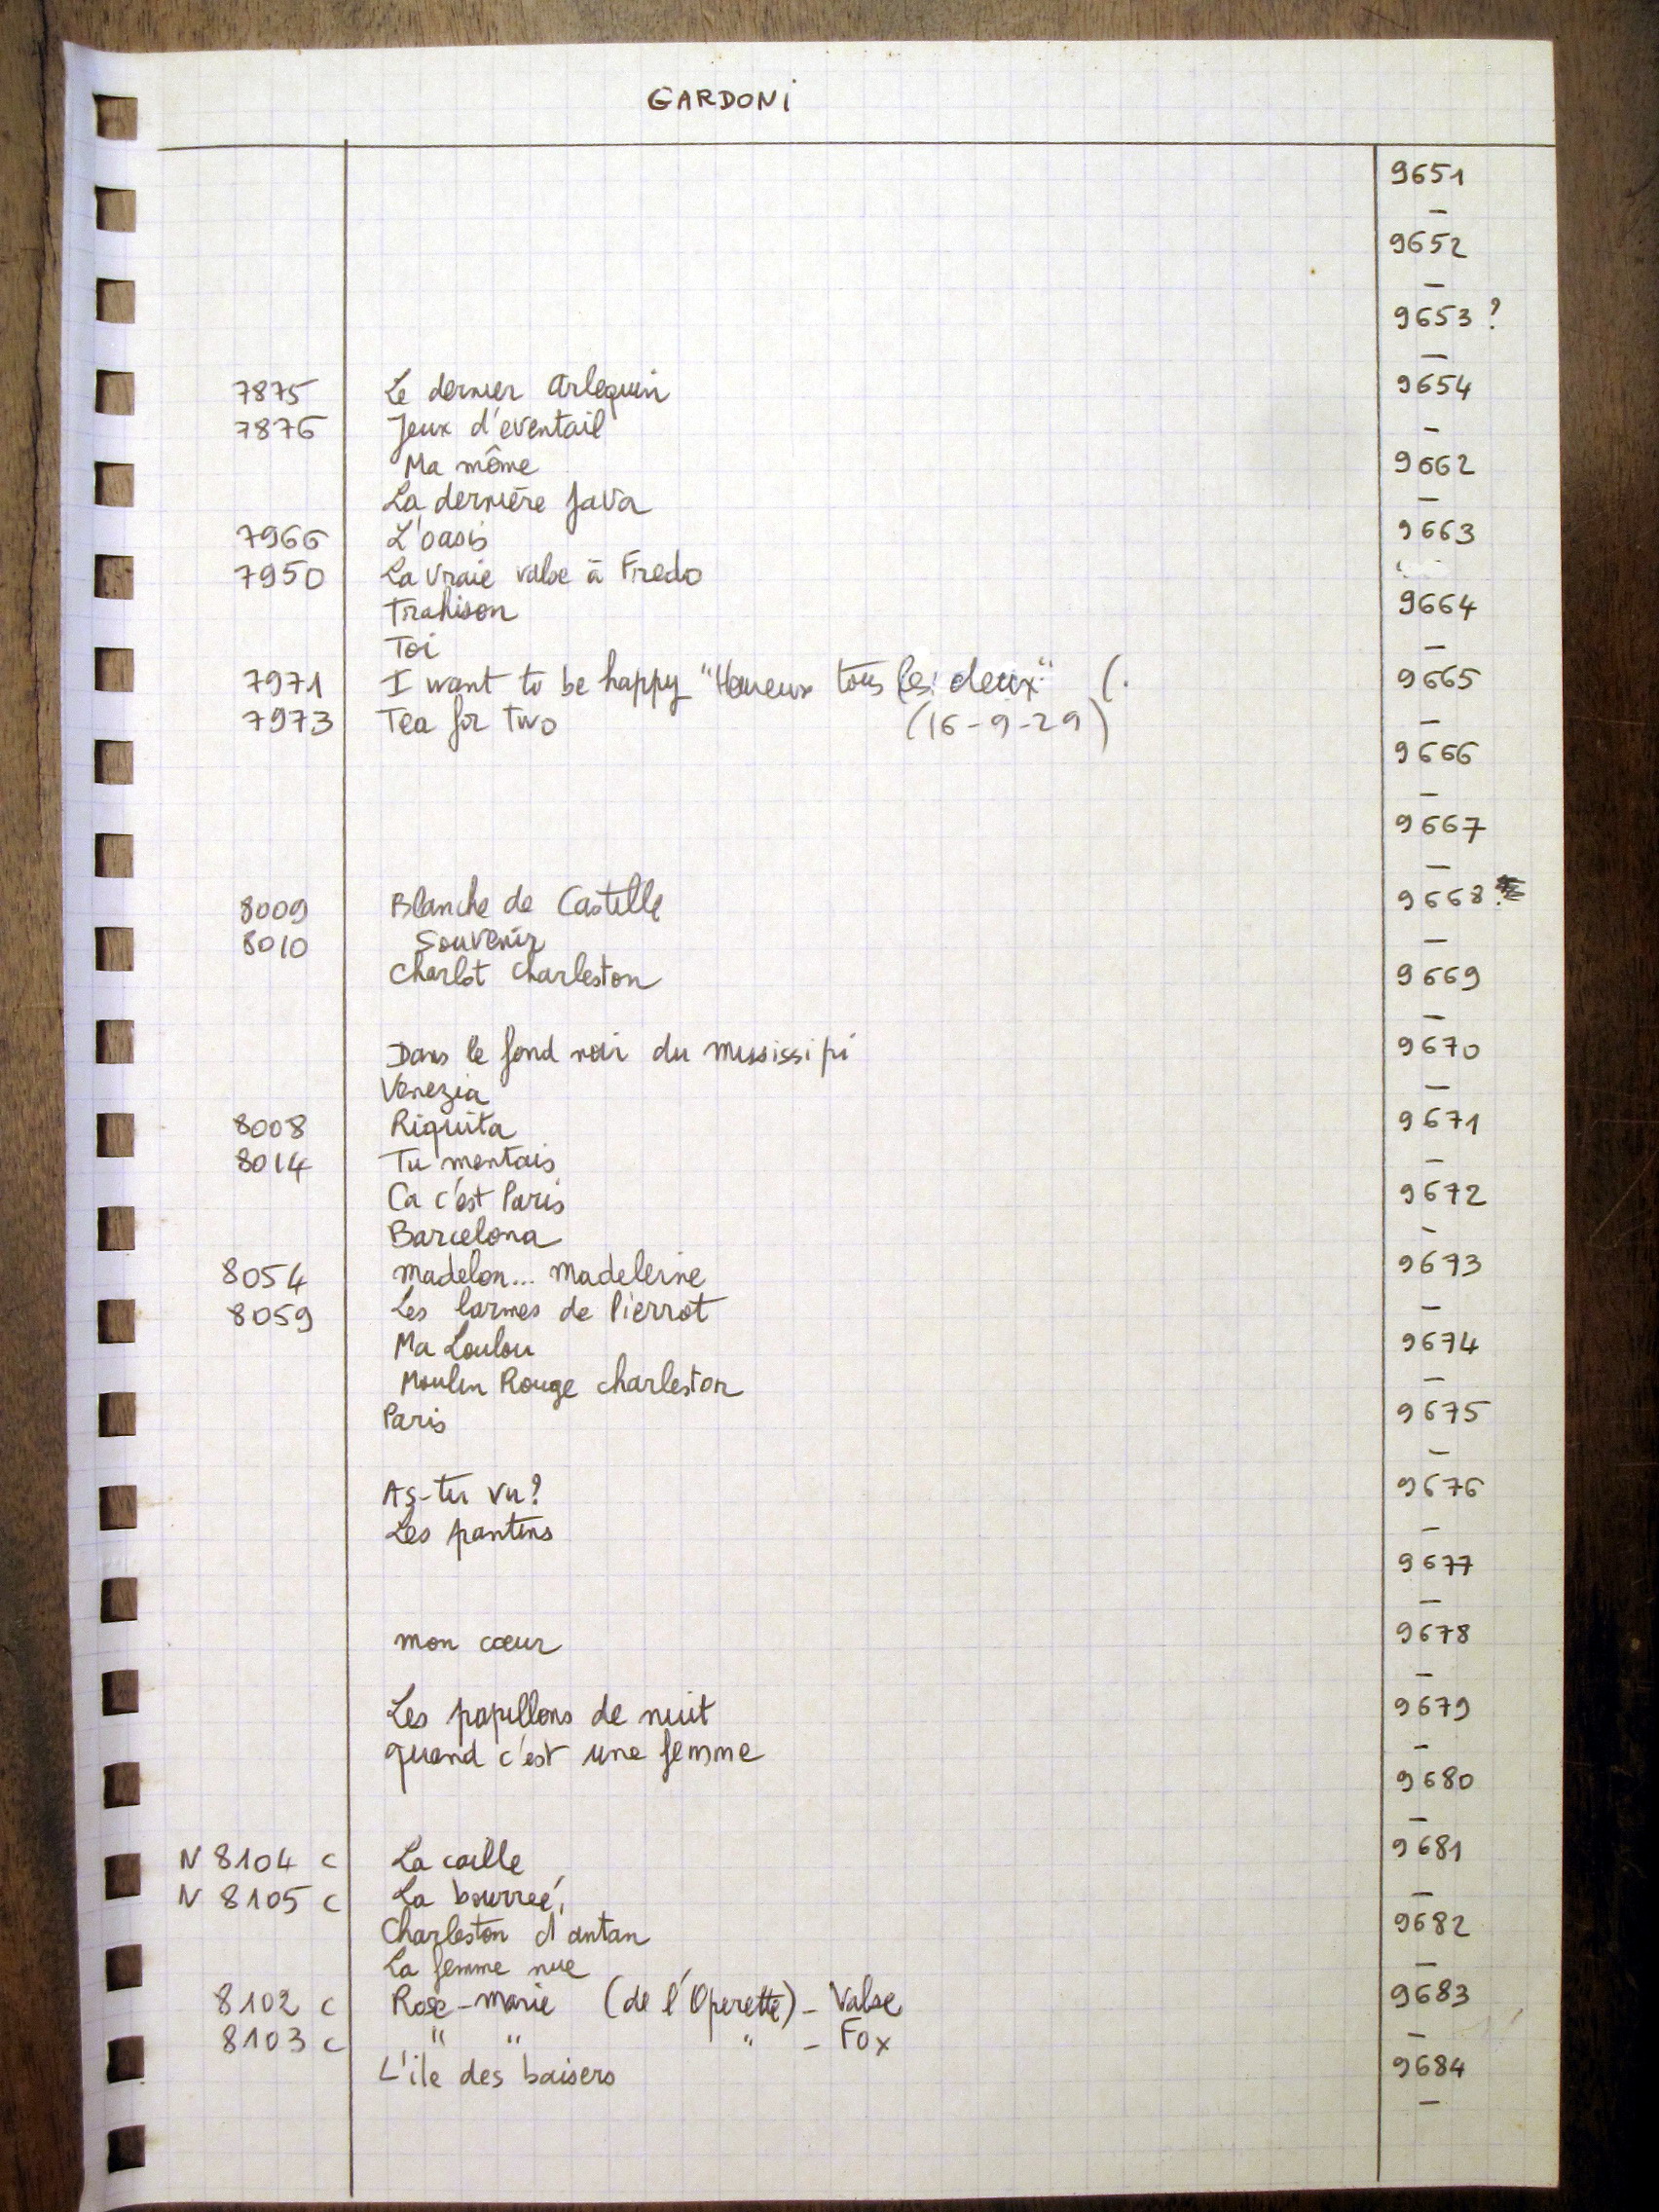 GARDONI
9651
–
9652
–
9653 ?
–
7875 Le dernier Arlequin 9654
7876 Jeux d'eventail –
Ma môme 9662
La dernière Java –
7966 L'oasis 9663
7950 La vraie valse à Fredo
Trahison 9664
Toi –
7971 I want to be happy "Heureux tous les deux" (. 9665
7973 Tea for two (16-9-29) –
9666
–
9667
–
8009 Blanche de Castille 9668
8010 Souvenir –
Charlot Charleston 9669
–
Dans le fond noir du Mississipi 9670
Venezia –
8008 Riquita 9671
8014 Tu mentais –
Ca c'est Paris 9672
Barcelona –
8054 Madelon... Madeleine 9673
8059 Les larmes de Pierrot –
Ma Loulou 9674
Moulin Rouge charleston –
Paris 9675
–
As-tu vu? 9676
Les pantins –
9677
–
mon cœur 9678
–
Les papillons de nuit 9679
quand c'est une femme –
9680
–
N 8104 c La caille 9681
N 8105 c La bourreé, –
Charleston d'antan 9682
La femme nue –
8102 c Rose-Marie (de l'Operette) - Valse 9683
8103 c " " " - Fox –
L'ile des baisers 9684
–